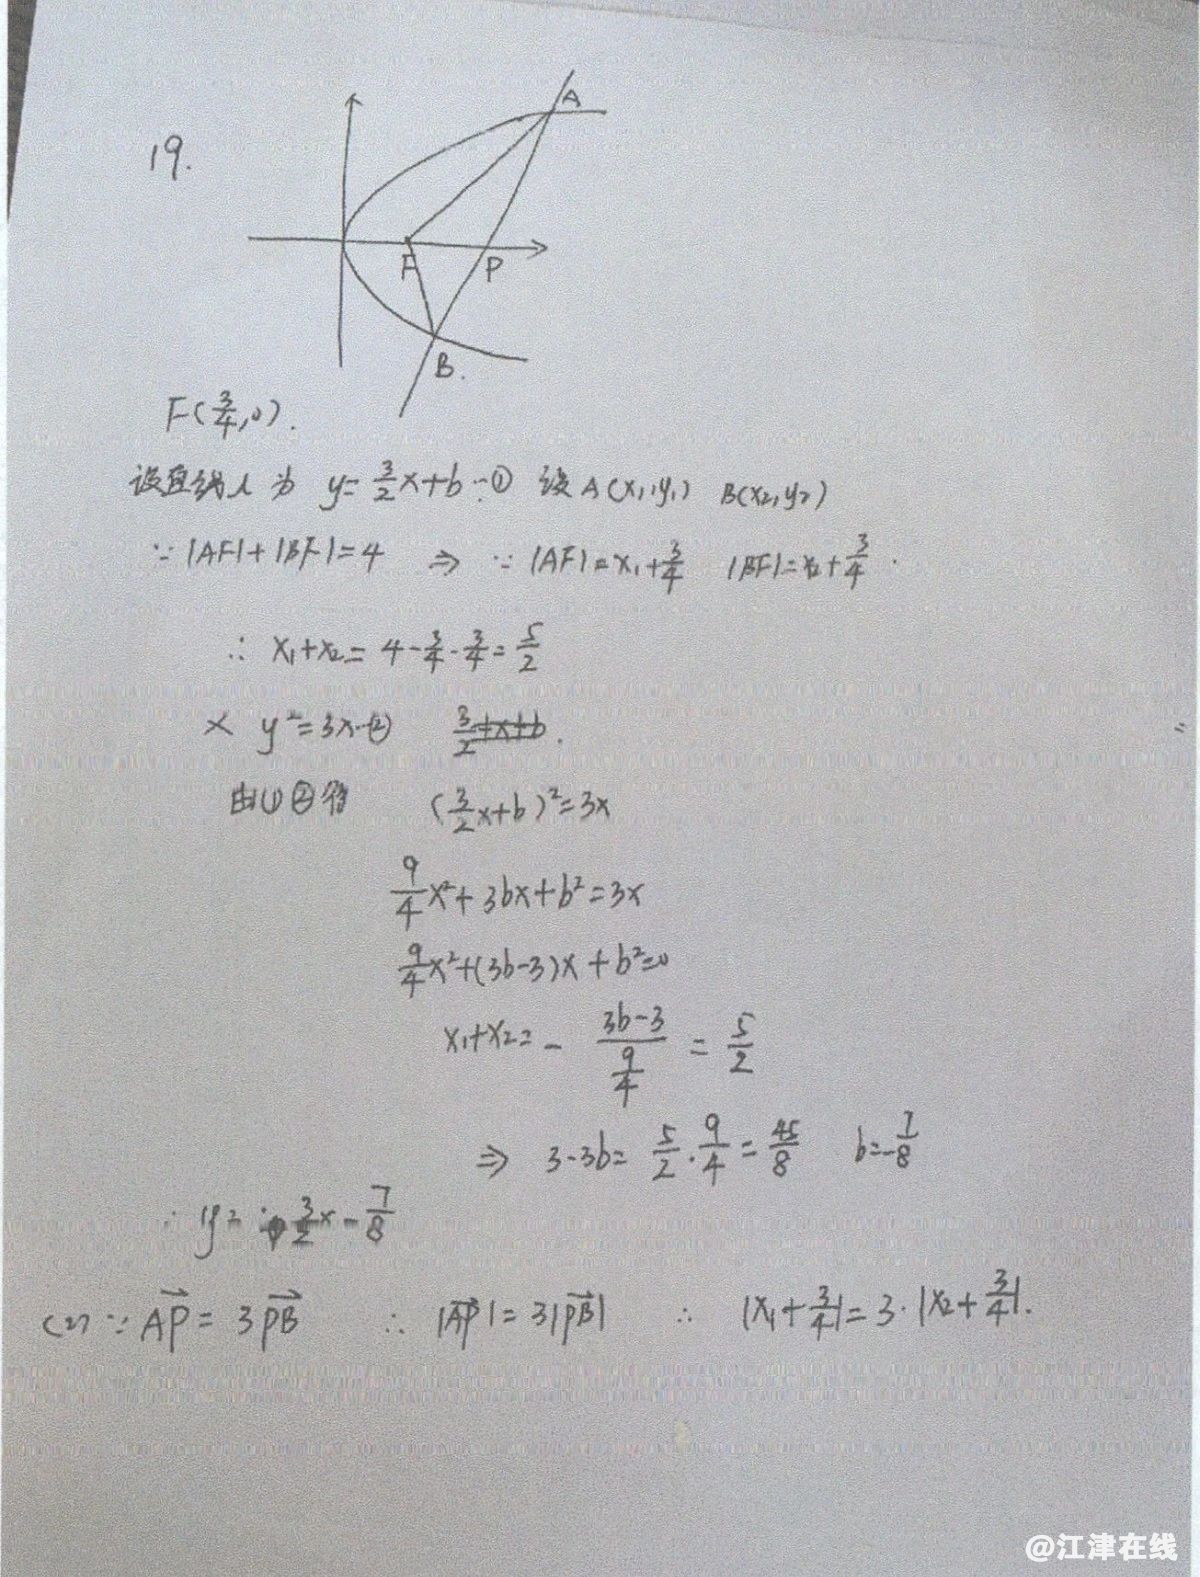 19.
A
F
P
B.
F(3/4,0).
设直线l为 y=3/2x+b…① 设A(x₁,y₁) B(x₂,y₂)
∵|AF|+|BF|=4 ⇒ ∵|AF|=x₁+3/4 |BF|=x₂+3/4.
∴ x₁+x₂=4-3/4-3/4=5/2
又 y²=3x…②
由①②得 (3/2x+b)²=3x
9/4x²+3bx+b²=3x
9/4x²+(3b-3)x+b²=0
x₁+x₂=-(3b-3)/(9/4)=5/2
⇒ 3-3b=5/2·9/4=45/8 b=-7/8
∴ y=3/2x-7/8
(2) ∵ AP→=3PB→ ∴ |AP→|=3|PB→| ∴ |x₁+3/4|=3·|x₂+3/4|.
@江津在线